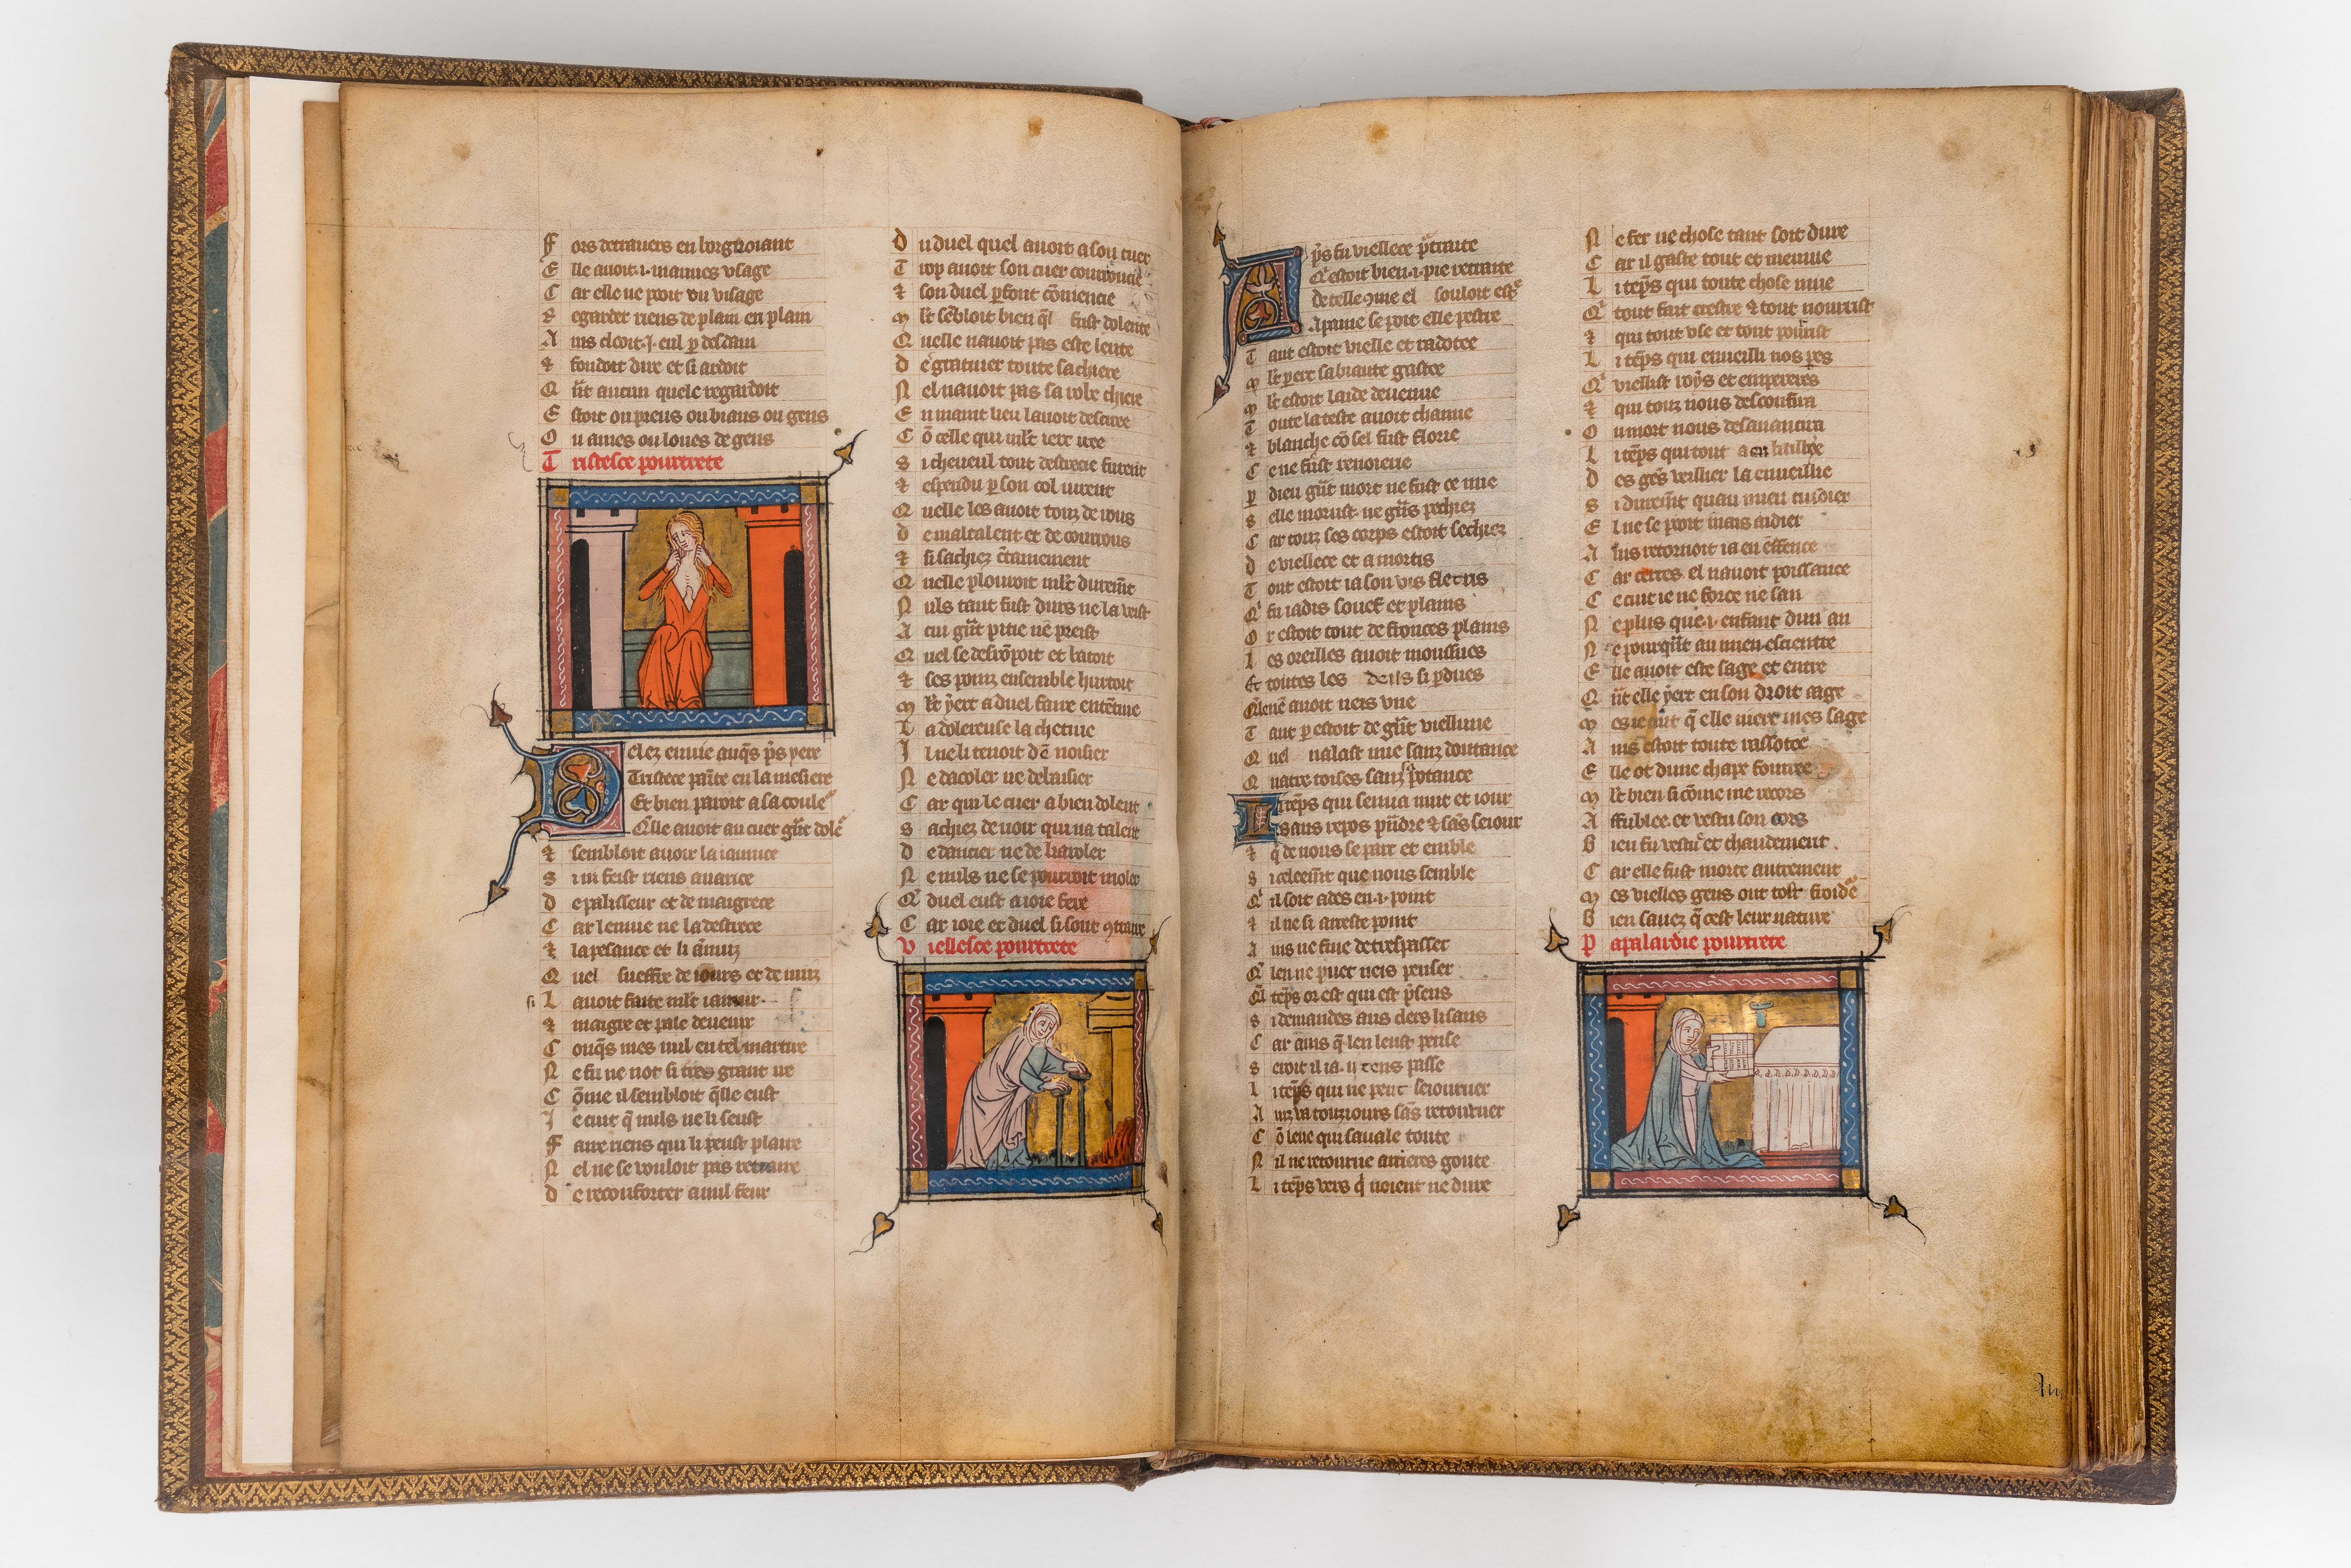 F ors detravers en borgnoiant
E lle avoit .i. mauves usage
C ar elle ne pooit ou visage
R egarder riens de plain en plain
A ins clooit .j. eul p desdain
⁊ fondoit dire et si ardoit
Q ñt aucun quele regardoit
E stoit ou preus ou biaus ou gens
O u ames ou loues de gens
T ristesce pourtrete
D elez envie auq̃s p̃s yere
Tristece painte en la mesiere
Et bien paroit a sa coule
Q̃lle avoit au cuer gñt dole
⁊ sembloit avoir la iaunice
S i ni feist riens avarice
D e palisseur et de maigrece
C ar lenuie ne la destrece
⁊ la pesance et li ãnuiz
Q uel sueffre de iours et de nuiz
si L avoit faite ml't iaunir
⁊ maigre et pale devenir
C onq̃s mes nul en tel martire
N e fu ne not si tres grant ire
C õme il sembloit q̃lle eust
J e cuit q̃ nuls ne li seust
F aire riens qui li peust plaire
N el ne se vouloit pas retraire
D e reconforter a nul feur
D u duel quel avoit a son cuer
T rop avoit son cuer courroucie
⁊ son duel pfont cõmencie
M l't sẽbloit bien q̃l fust dolente
Q uelle navoit pas este lente
D egratiner toute sa chiere
N el navoit pas sa robe chiere
E n maint lieu lavoit desciree
C õ celle qui ml't iere iree
S i cheveul tout destrecie furent
⁊ espendu p son col iurent
Q uelle les avoit touz de rous
D e maltalent et de courrous
⁊ si sachiez c̃tainement
Q uelle plouroit ml't durem̃t
N uls tant fust durs ne la veist
A cui gñt pitie nẽ preist
Q uel se desrõpoit et batoit
⁊ ses poinz ensemble hurtoit
M l't yere a duel faire entẽtive
L a dolereuse la chetive
J l ne li tenoit dẽ noisier
N e dacoler ne de baisier
C ar qui le cuer a bien dolent
S achiez de voir qui na talent
D e dancier ne de baroler
N e nuls ne se pourroit moler
Q' duel eust a ioie fere
C ar ioie et duel si sont ꝯtraire
V iellesce pourtrete
A p̃s fu viellece p̃traite
Q' estoit bien .i. pie retraite
de telle ꝯme el souloit est'
A paine se poit elle pestre
T ant estoit vielle et radotee
M l't yere sa biaute gastee
M l't estoit laide devenue
T oute la teste avoit chanue
⁊ blanche cõ sel fust florie
C e ne fust
P dieu gñt mort ne fust ce mie
S elle morust ne gñs pechiez
C ar touz ses corps estoit sechiez
D e viellece et a mortis
T out estoit ia son vis fletris
Q' fu iadis souef et plains
O r estoit tout de fronces plains
L es oreilles avoit moussues
Et toutes les dens si pdues
Q̃lenẽ avoit neis une
T ant p estoit de gñt viellune
Q uel nalast mie sanz doutance
Q uatre toises sanz potance
L i tẽps qui senva nuit et iour
Sans repos pñdre ⁊ sãs seiour
⁊ q' de nous se part et emble
S i celeem̃t que nous semble
Q' il soit ades en .i. point
⁊ il ne si arreste point
A ins ne fine de trespasser
Q' len ne puet neis penser
Q̃l tẽps or est qui est p̃sens
S i demandes aus clers lisans
C ar ains q̃ len leust pense
S eroit il ia .ij. tens passe
L i tẽps qui ne peut seiourner
A inz va touziours sãs retourner
C õ leue qui savale toute
N il ne retourne arrieres goute
L i tẽps vers q' noient ne dure
N e fer ne chose tant soit dure
C ar il gaste tout et menue
L i tẽps qui toute chose mue
Q' tout fait crestre ⁊ tout nourrist
⁊ qui tout use et tout pourrist
L i tẽps qui enveilli nos pes
Q' viellist roys et empereres
⁊ qui touz nous desconfira
O u mort nous desavancira
L i tẽps qui tout a en baillie
D es gẽs veillier la enveillie
S i durem̃t quau mien cuidier
E l ne se pooit mais aidier
A ins retornoit ia en effence
C ar certes el navoit poissance
C e cuit ie ne force ne san
N e plus que .i. enfant dun an
N e pourq̃nt au mien escientre
E lle avoit este sage et entre
Q ñt elle yere en son droit aage
M es ie cuit q̃ elle niere mes sage
A ins estoit toute rassotee
E lle ot dune chape fourree
M l't bien si cõme me recors
A ffublee et vestu son cors
B ien fu vestue et chaudement
C ar elle fust morte autrement
M es vielles gens ont tost froidẽ
B ien savez q̃ cest leur nature
P apalardie pourtrete